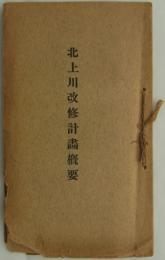 北上川改修計畫概要